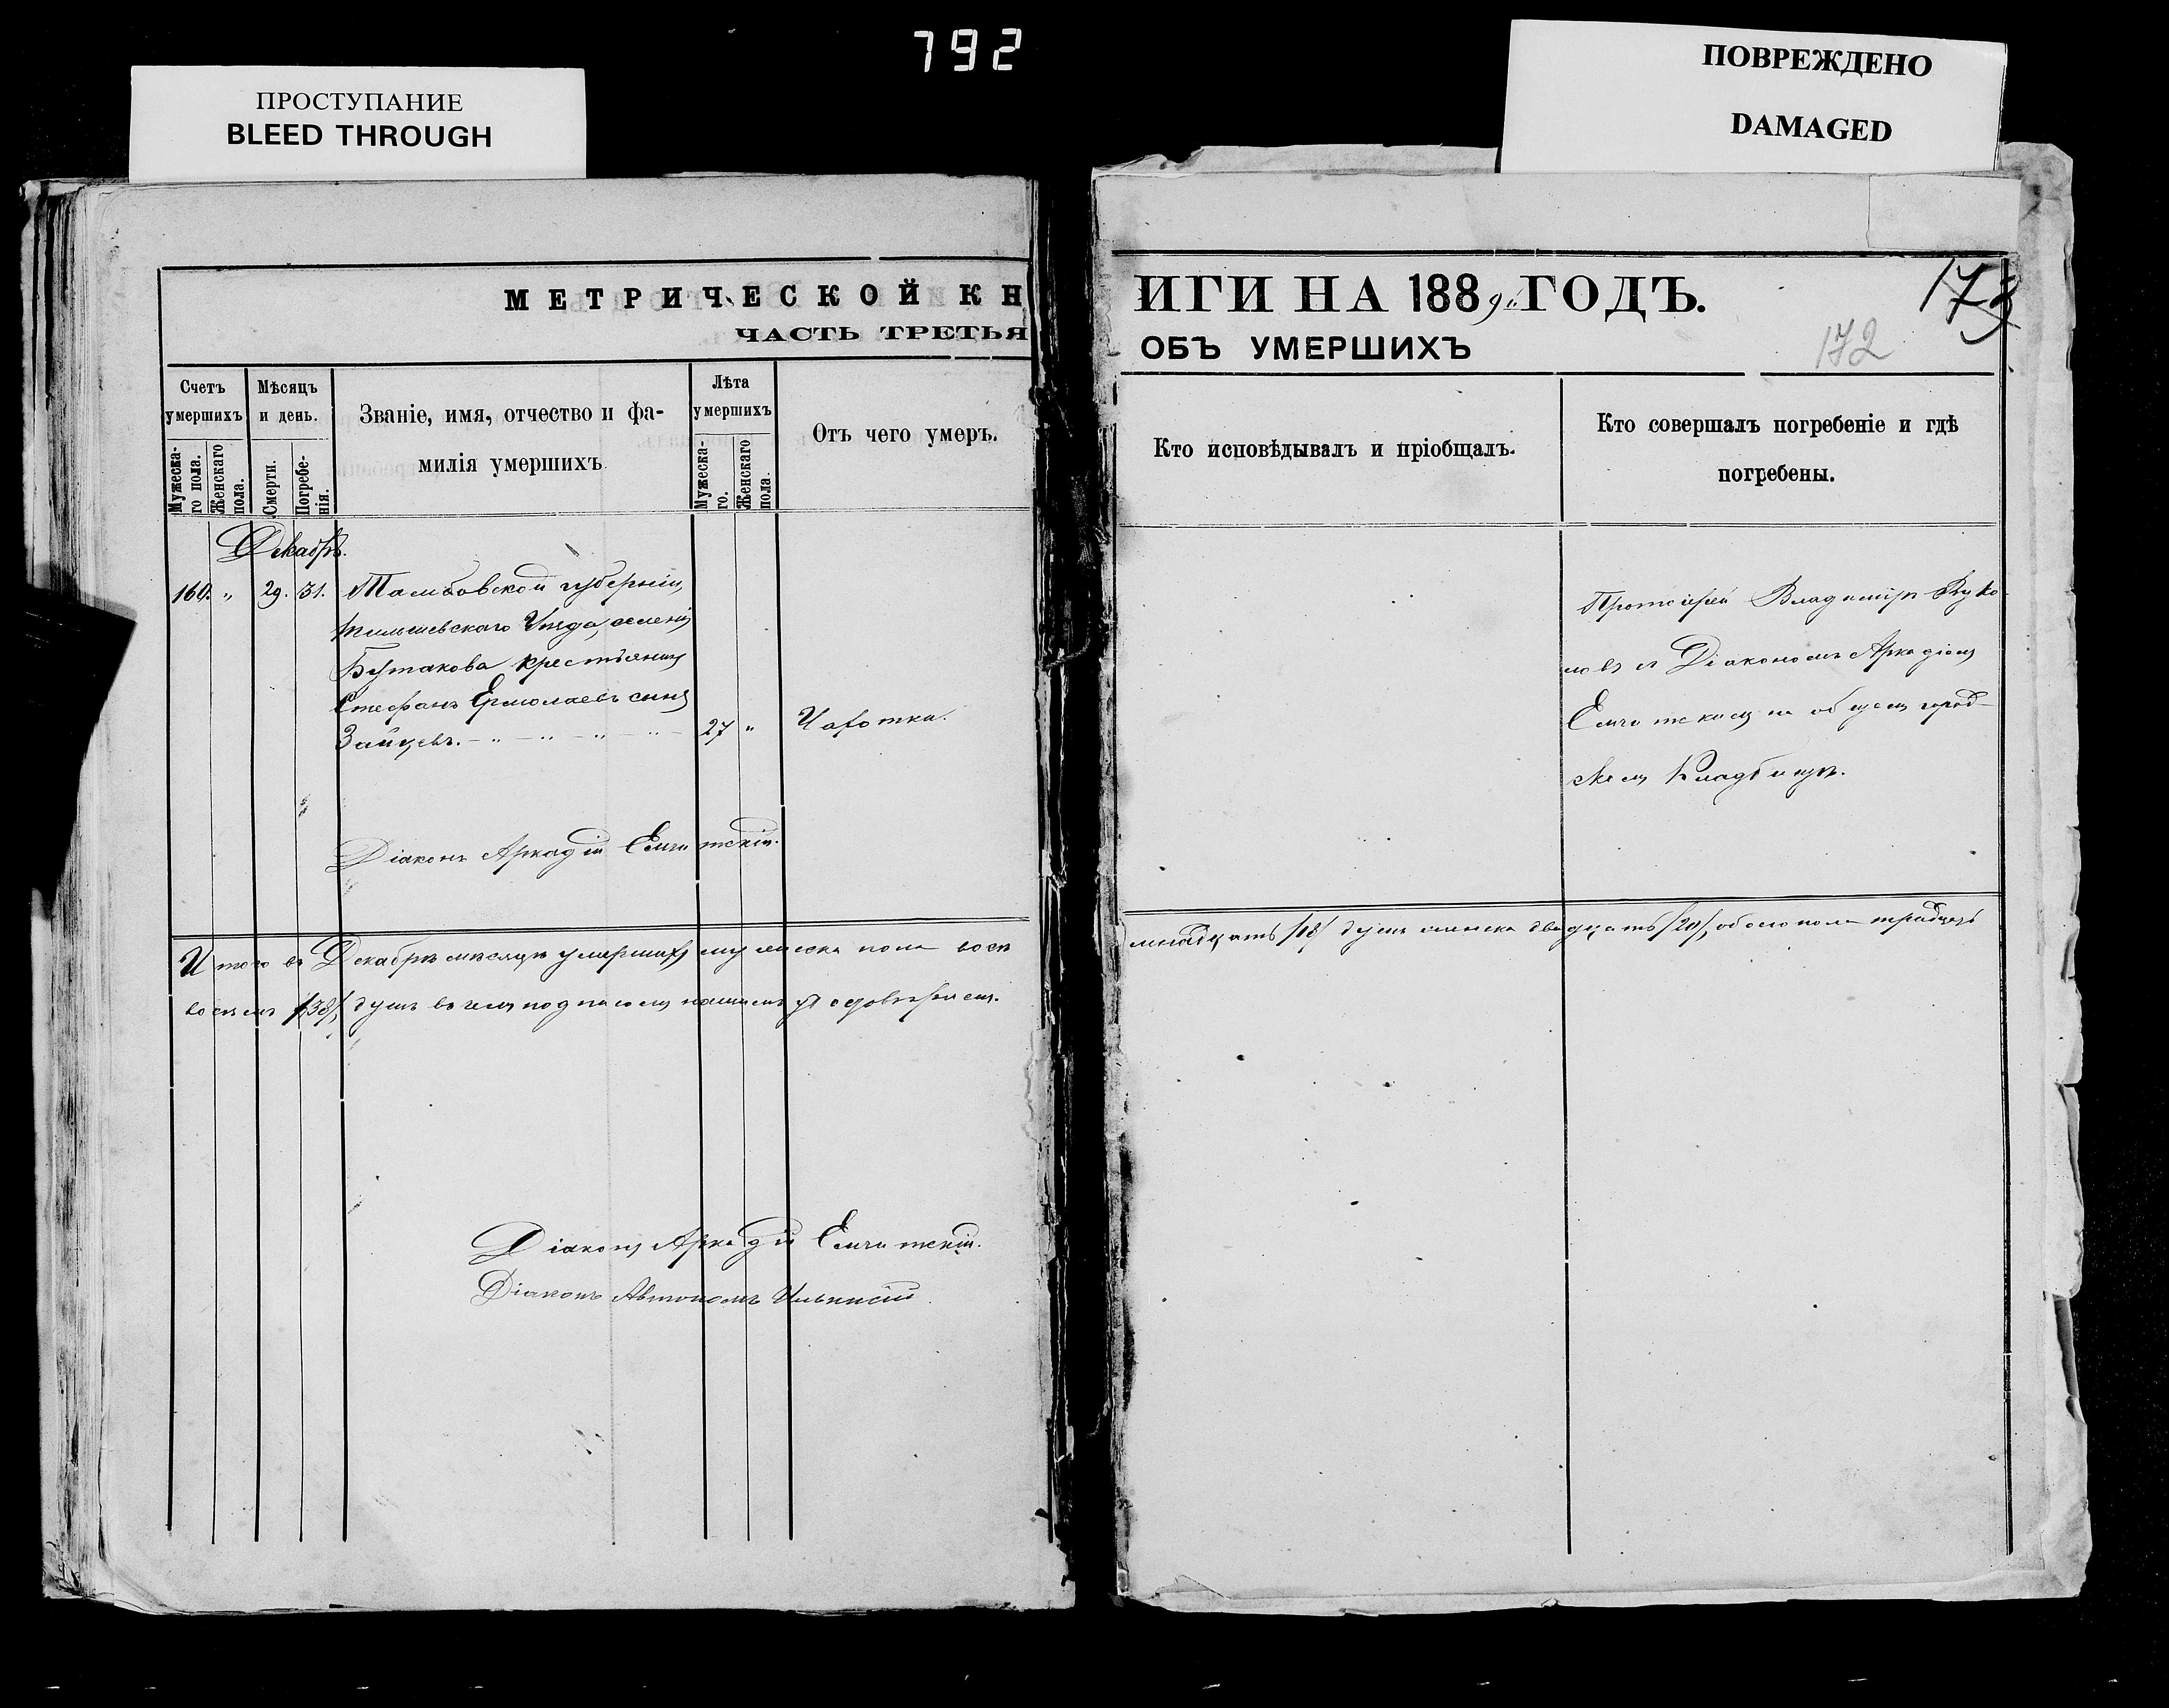 792
ПРОСТУПАНИЕ
BLEED THROUGH
ПОВРЕЖДЕНО
DAMAGED
МЕТРИЧЕСКОЙ КНИГИ НА 1889й ГОДЪ.
ЧАСТЬ ТРЕТЬЯ ОБЪ УМЕРШИХЪ
173
172
Счетъ умершихъ
Мужеска-го пола.
Женскаго пола.
Мѣсяцъ и день.
Смерти.
Погребе-нія.
Званіе, имя, отчество и фа-
милія умершихъ
Лѣта умершихъ
Мужеска-го.
Женскаго пола.
Отъ чего умеръ.
Кто исповѣдывалъ и пріобщалъ.
Кто совершалъ погребеніе и гдѣ
погребены.
Декабрь.
160. „ 29. 31. Тамбовской губерніи,
Уѣзда, селенія
Бутакова крестьянинъ
Стефанъ Ермолаевъ сынъ
Зайцевъ. 27 „ Чахотка.
Протоіерей Владиміръ
съ Діакономъ Аркадіемъ
на общемъ город-
скомъ кладбищѣ.
Діаконъ Аркадій
Итого въ Декабрѣ мѣсяцѣ умершихъ мужеска пола восемнадцать /18/ душъ женска двадцать /20/, обоего пола тридцать
восемь /38/ душъ въ чемъ подписомъ нашимъ удостовѣряемъ.
Діаконъ Аркадій
Діаконъ Автономъ